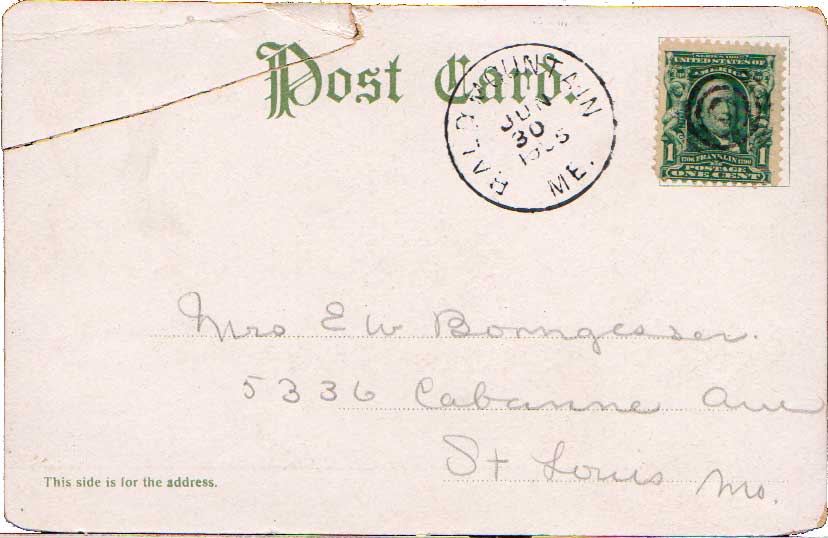 Post Card.
BALD MOUNTAIN
JUN
30
ME.
SERIES 1902
UNITED STATES OF
AMERICA
1 1706 FRANKLIN 1790 1
POSTAGE
ONE CENT
Mrs E W
5336 Cabanne Ave
St Louis Mo.
This side is for the address.